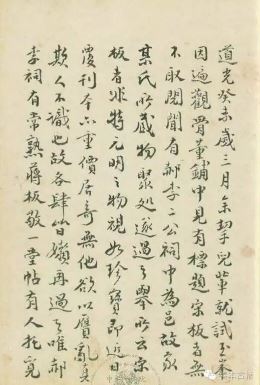 道光癸未歲三月余挈兒輩就試玉峯
因遍觀骨董鋪中見有標題宋板者無
不取閱聞有郝李二公祠中為邑故家
某氏所藏物聚處遂過之舉所云宋
板者非特元明之物視如珍寶即近日
覆刊本亦重價居奇無他欲以贗亂真
欺人不識也故各肆皆嬾再過之唯郝
李祠有常熟蔣板敬一堂帖有人托覓